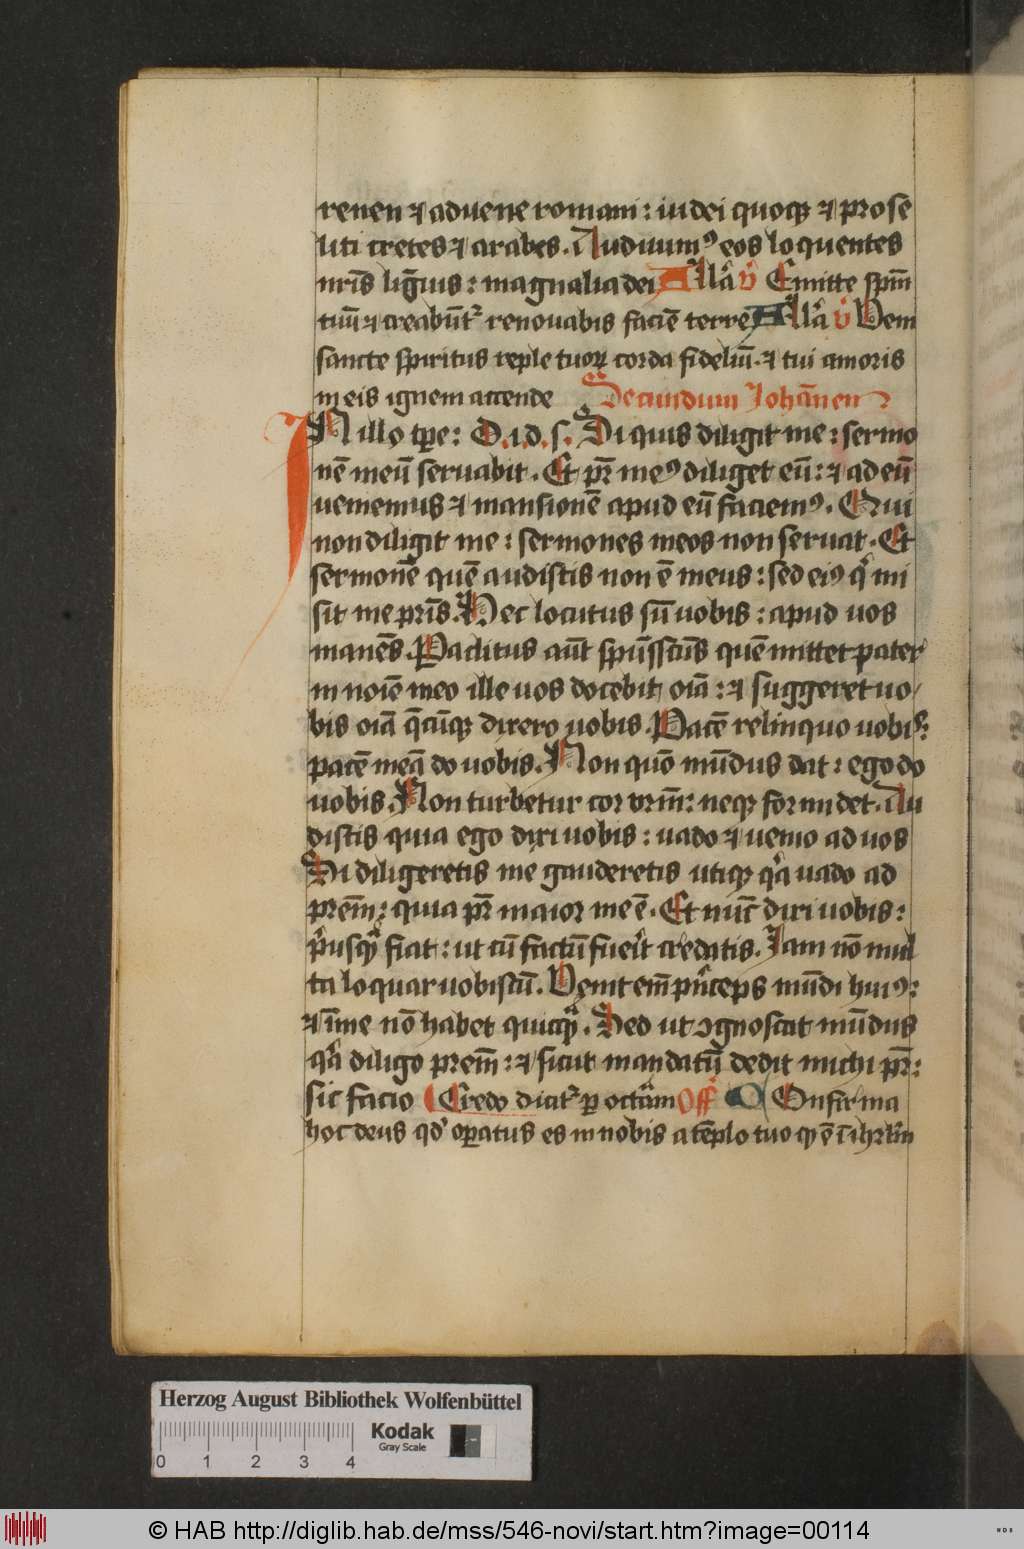 renen ⁊ advene romani : iudei quoqꝫ ⁊ prose
liti cretes ⁊ arabes . Audiuimꝰ eos loquentes
nr̄is līguis : magnalia dei All̄a v̄ Emitte spm̄
tuū ⁊ creabūtᷣ renouabis faciē terre All̄a v̄ Veni
sancte spiritus reple tuoꝝ corda fideliū . ⁊ tui amoris
in eis ignem accende Secundum Johānen
IN illo tp̄e : D . i . d . s . Si quis diligit me : sermo
nē meū seruabit . Et pr̄ meꝰ diliget eū : ⁊ ad eū
veniemus ⁊ mansionē apud eū faciemꝰ . Qui
non diligit me : sermones meos non seruat . Et
sermonē quē audistis non ē meus : sed eiꝰ qͥ mi
sit me pr̄is . Hec locutus sū uobis : apud uos
manēs . Paclitus aūt spūsscūs quē mittet pater
in noīe meo ille uos docebit oīa : ⁊ suggeret uo
bis oīa q̄cūqꝫ dixero uobis . Pacē relinquo uobis :
pacē meā do uobis . Non quō mūdus dat : ego do
uobis . Non turbetur cor vr̄m : neqꝫ formidet . Au
distis quia ego dixi uobis : uado ⁊ uenio ad uos
Si diligeretis me gauderetis utiqꝫ qͣ uado ad
prēm : quia pr̄ maior me ē . Et nūc dixi uobis :
pͥusqͣ fiat : ut cū factū fueit̄ credatis . Jam nō mul
ta loquar uobiscū . Venit em̄ pͥnceps mūdi huiꝰ :
⁊ ī me nō habet quicqͣ . Sed ut ꝯgnoscat mūdus
qͣ diligo prēm : ⁊ sicut mandatū dedit michi pr̄ :
sic facio Credo dicatᷣ ꝑ octām Off̄ COnfirma
hoc deus qdͦ oꝑatus es in nobis a tēplo tuo qꝫ ē ī ihrlm̄
Herzog August Bibliothek Wolfenbüttel
Kodak
Gray Scale
0 1 2 3 4
© HAB http://diglib.hab.de/mss/546-novi/start.htm?image=00114